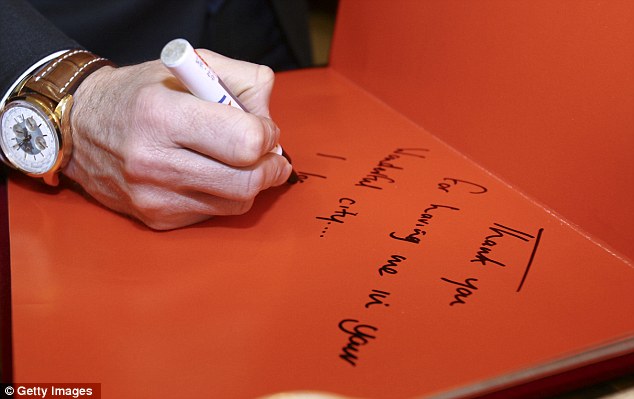 Thank you
For having me in your
Wonderful city....
I
© Getty Images